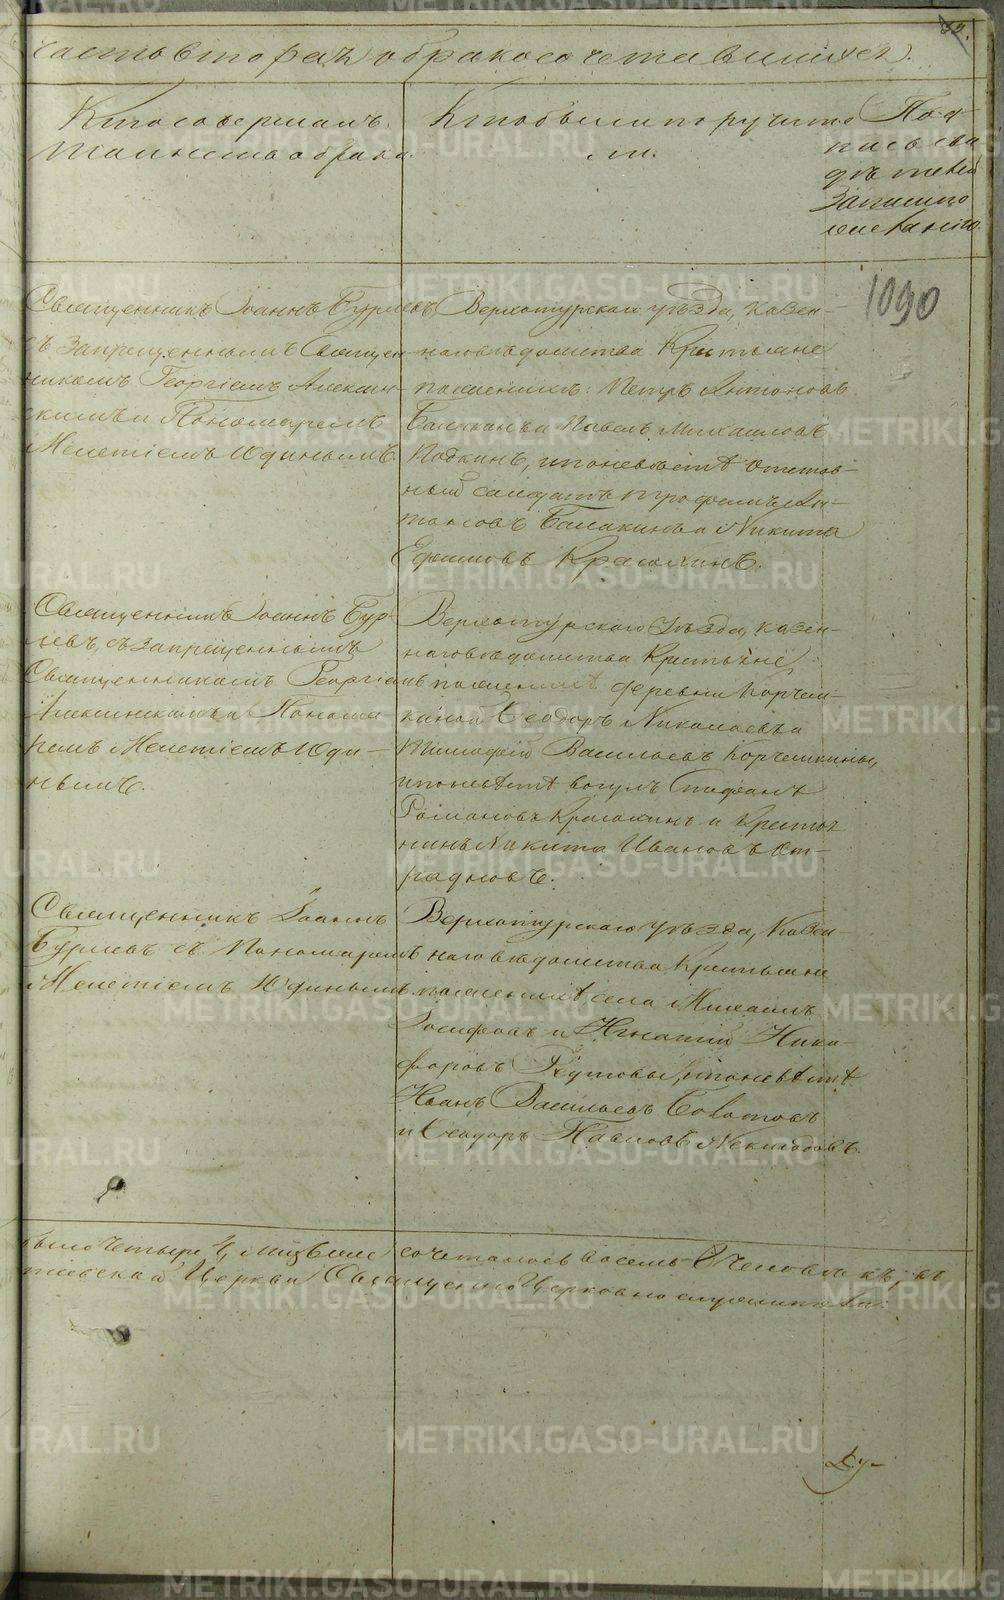 часть вторая о бракосочетавшихся.
Кто совершалъ
таинство брака.
Кто были поручите
ли.
Под
пись сви
дѣтелей
записи по
желанію.
1090
Священникъ Іоаннъ Бурлевъ
съ запрещеннымъ Священ-
никомъ Георгіемъ Алексин-
скимъ и Пономаремъ
Мелетіемъ Юдинымъ
Верхотурскаго уѣзда, казен-
наго вѣдомства Крестьяне
по женихѣ: Петръ Антоновъ
Балакинъ и Павелъ Михаиловъ
, и по невѣстѣ отстав-
ный солдатъ Трофимъ Ан-
тоновъ Балакинъ и Никита
Ефимовъ
Священникъ Іоаннъ Бур-
левъ, съ запрещеннымъ
Священникомъ Георгіемъ
Алексинскимъ и Понома-
ремъ Мелетіемъ Юди-
нымъ.
Верхотурскаго уѣзда, казен-
наго вѣдомства Крестьяне,
по женихѣ деревни Корчем-
киной Ѳеодоръ Николаевъ и
Тимофей Васильевъ Корчемкины,
и по невѣстѣ вогулъ Стефанъ
Романовъ и Крестья
нинъ Никита Ивановъ От-
радновъ.
Священникъ Іоаннъ
Бурлевъ съ Пономаремъ
Мелетіемъ Юдинымъ.
Верхотурскаго уѣзда, Казен-
наго вѣдомства Крестьяне
по женихѣ села Михаилъ
Іосифовъ и Игнатій Ники-
форовъ, и по невѣстѣ
Иванъ Васильевъ
и Ѳеодоръ Павловъ
было четыре 4, сочеталось восемь 8 человѣкъ; къ
Церкви Священно Церковно служители:
Ду-